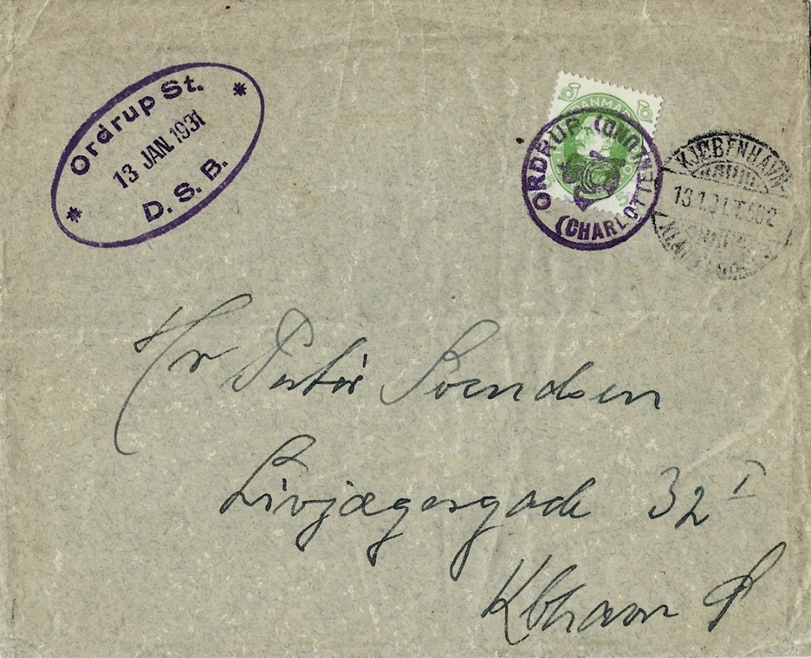 Ordrup St.
13 JAN. 1931
D. S. B.
DANMARK
ORDRUP
(CHARLOTTENLUND)
KJØBENHAVN
13.1.31
Hr Svendsen
Livjægergade 32 I
Kbhavn Ø